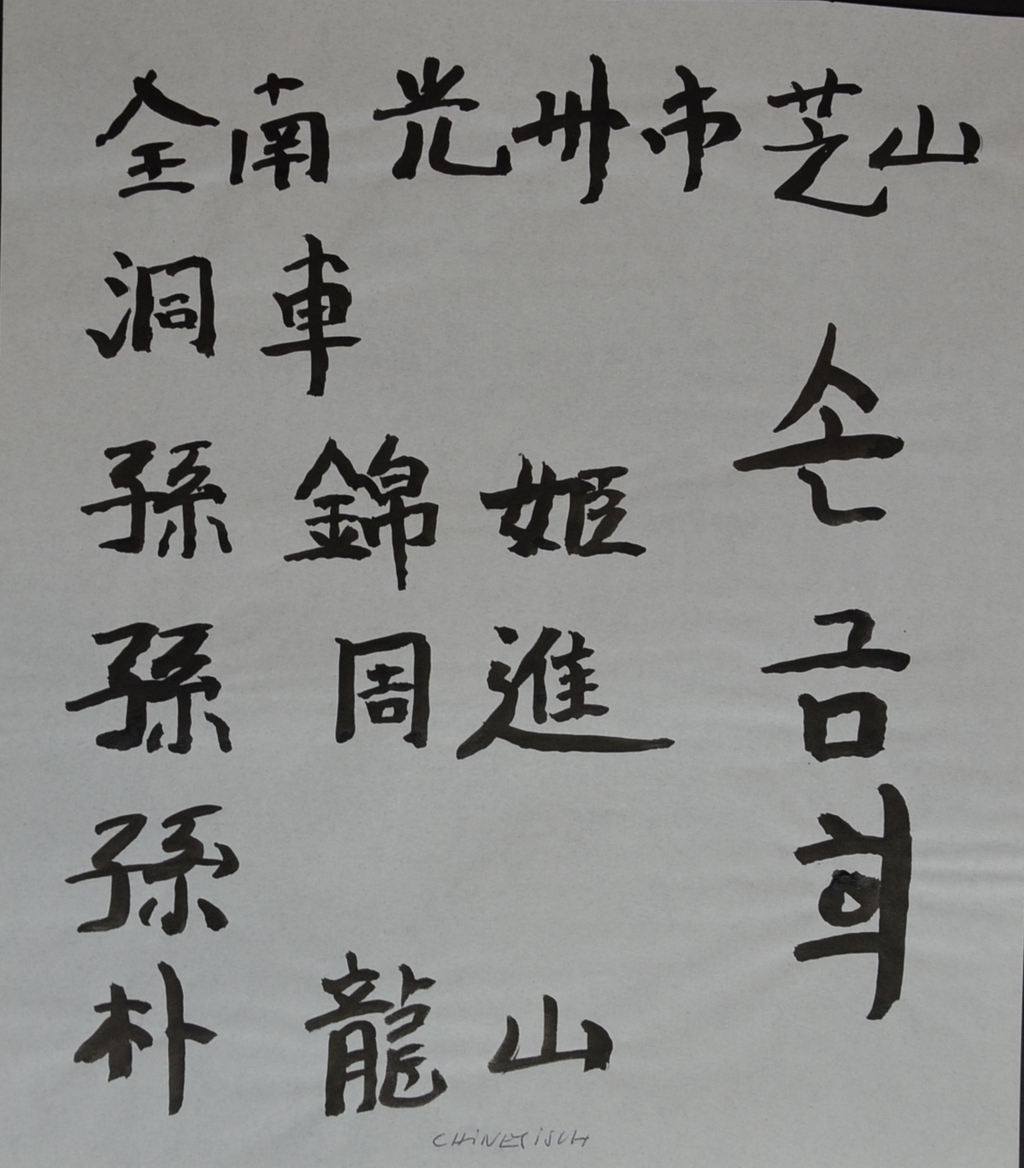 全南光州市芝山
洞車
孫錦姬
孫周進
孫
朴龍山
손금희
CHINESISCH